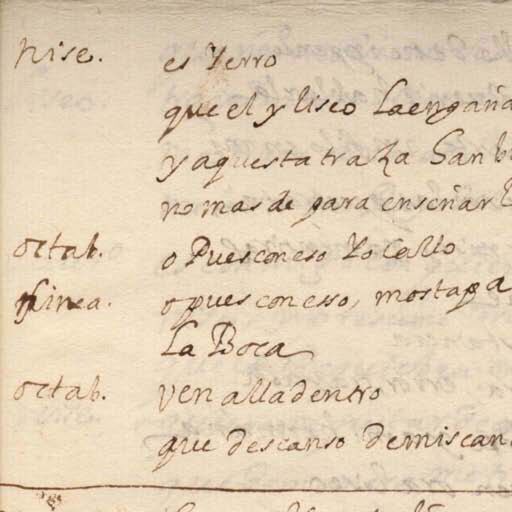 nise. es Yerro
que el y liseo La engaña
y aquesta traza San b
no mas de para enseñar
octab. o Pues con eso Yo Callo
finea. o pues con esso, mostapa
La Boca
octab. ven alla dentro
que descanso de mis can